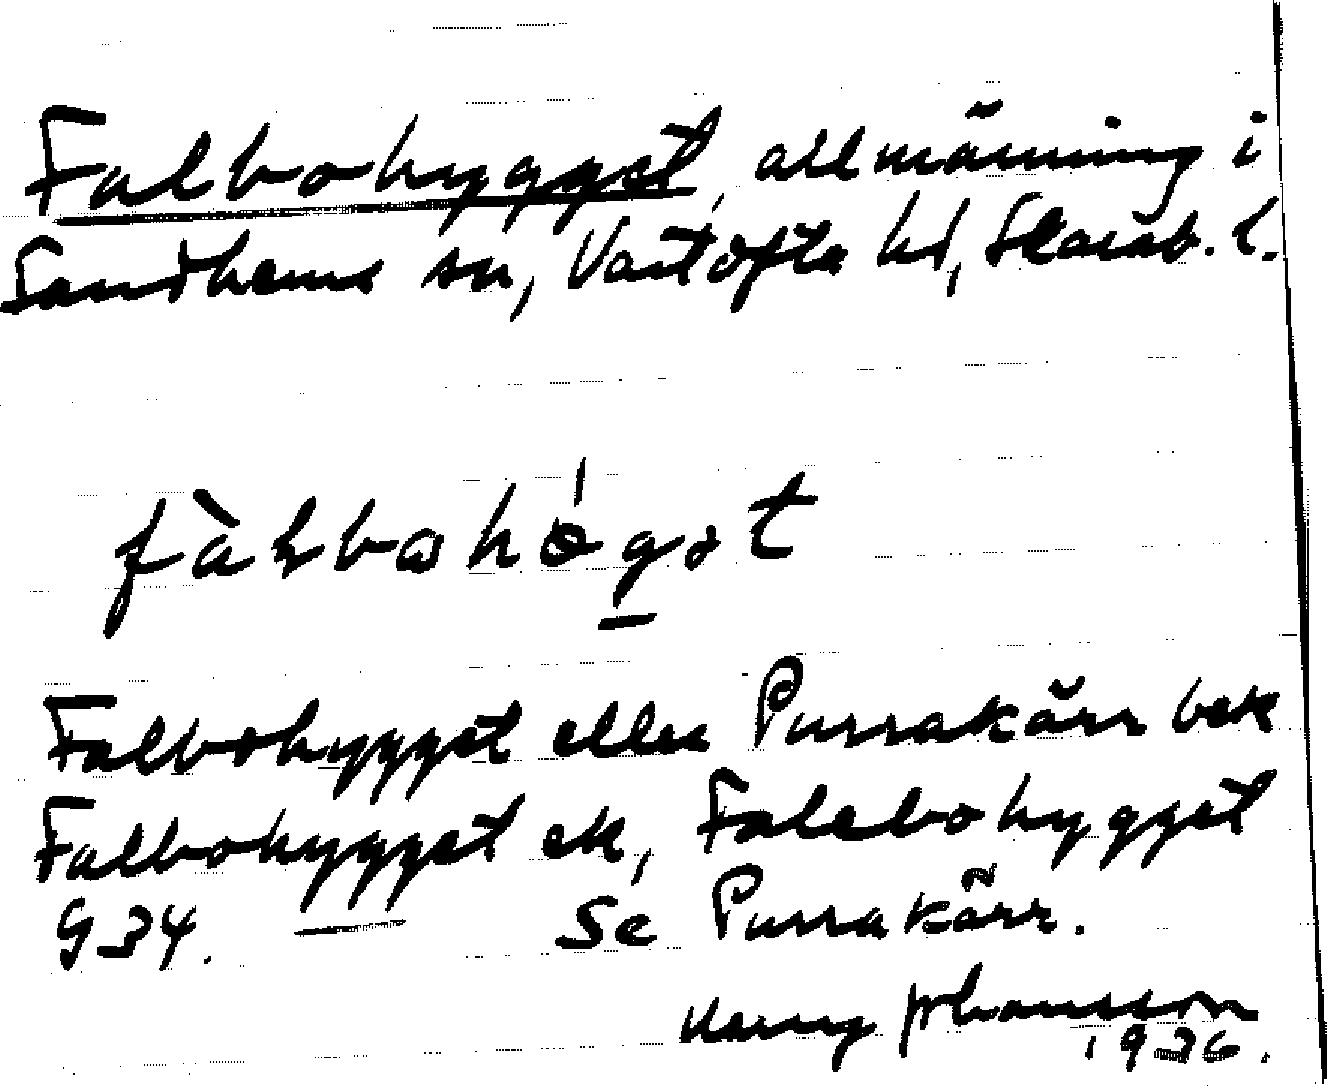 Falbohygget, allmänning i
Sandhems sn, Vartofta hd, Skarab. l.
Falbohygget eller Purrakärr bek
Falbohygget ek, Falebohygget
G34. — Se Purrakärr.
Harry Johansson
1936.